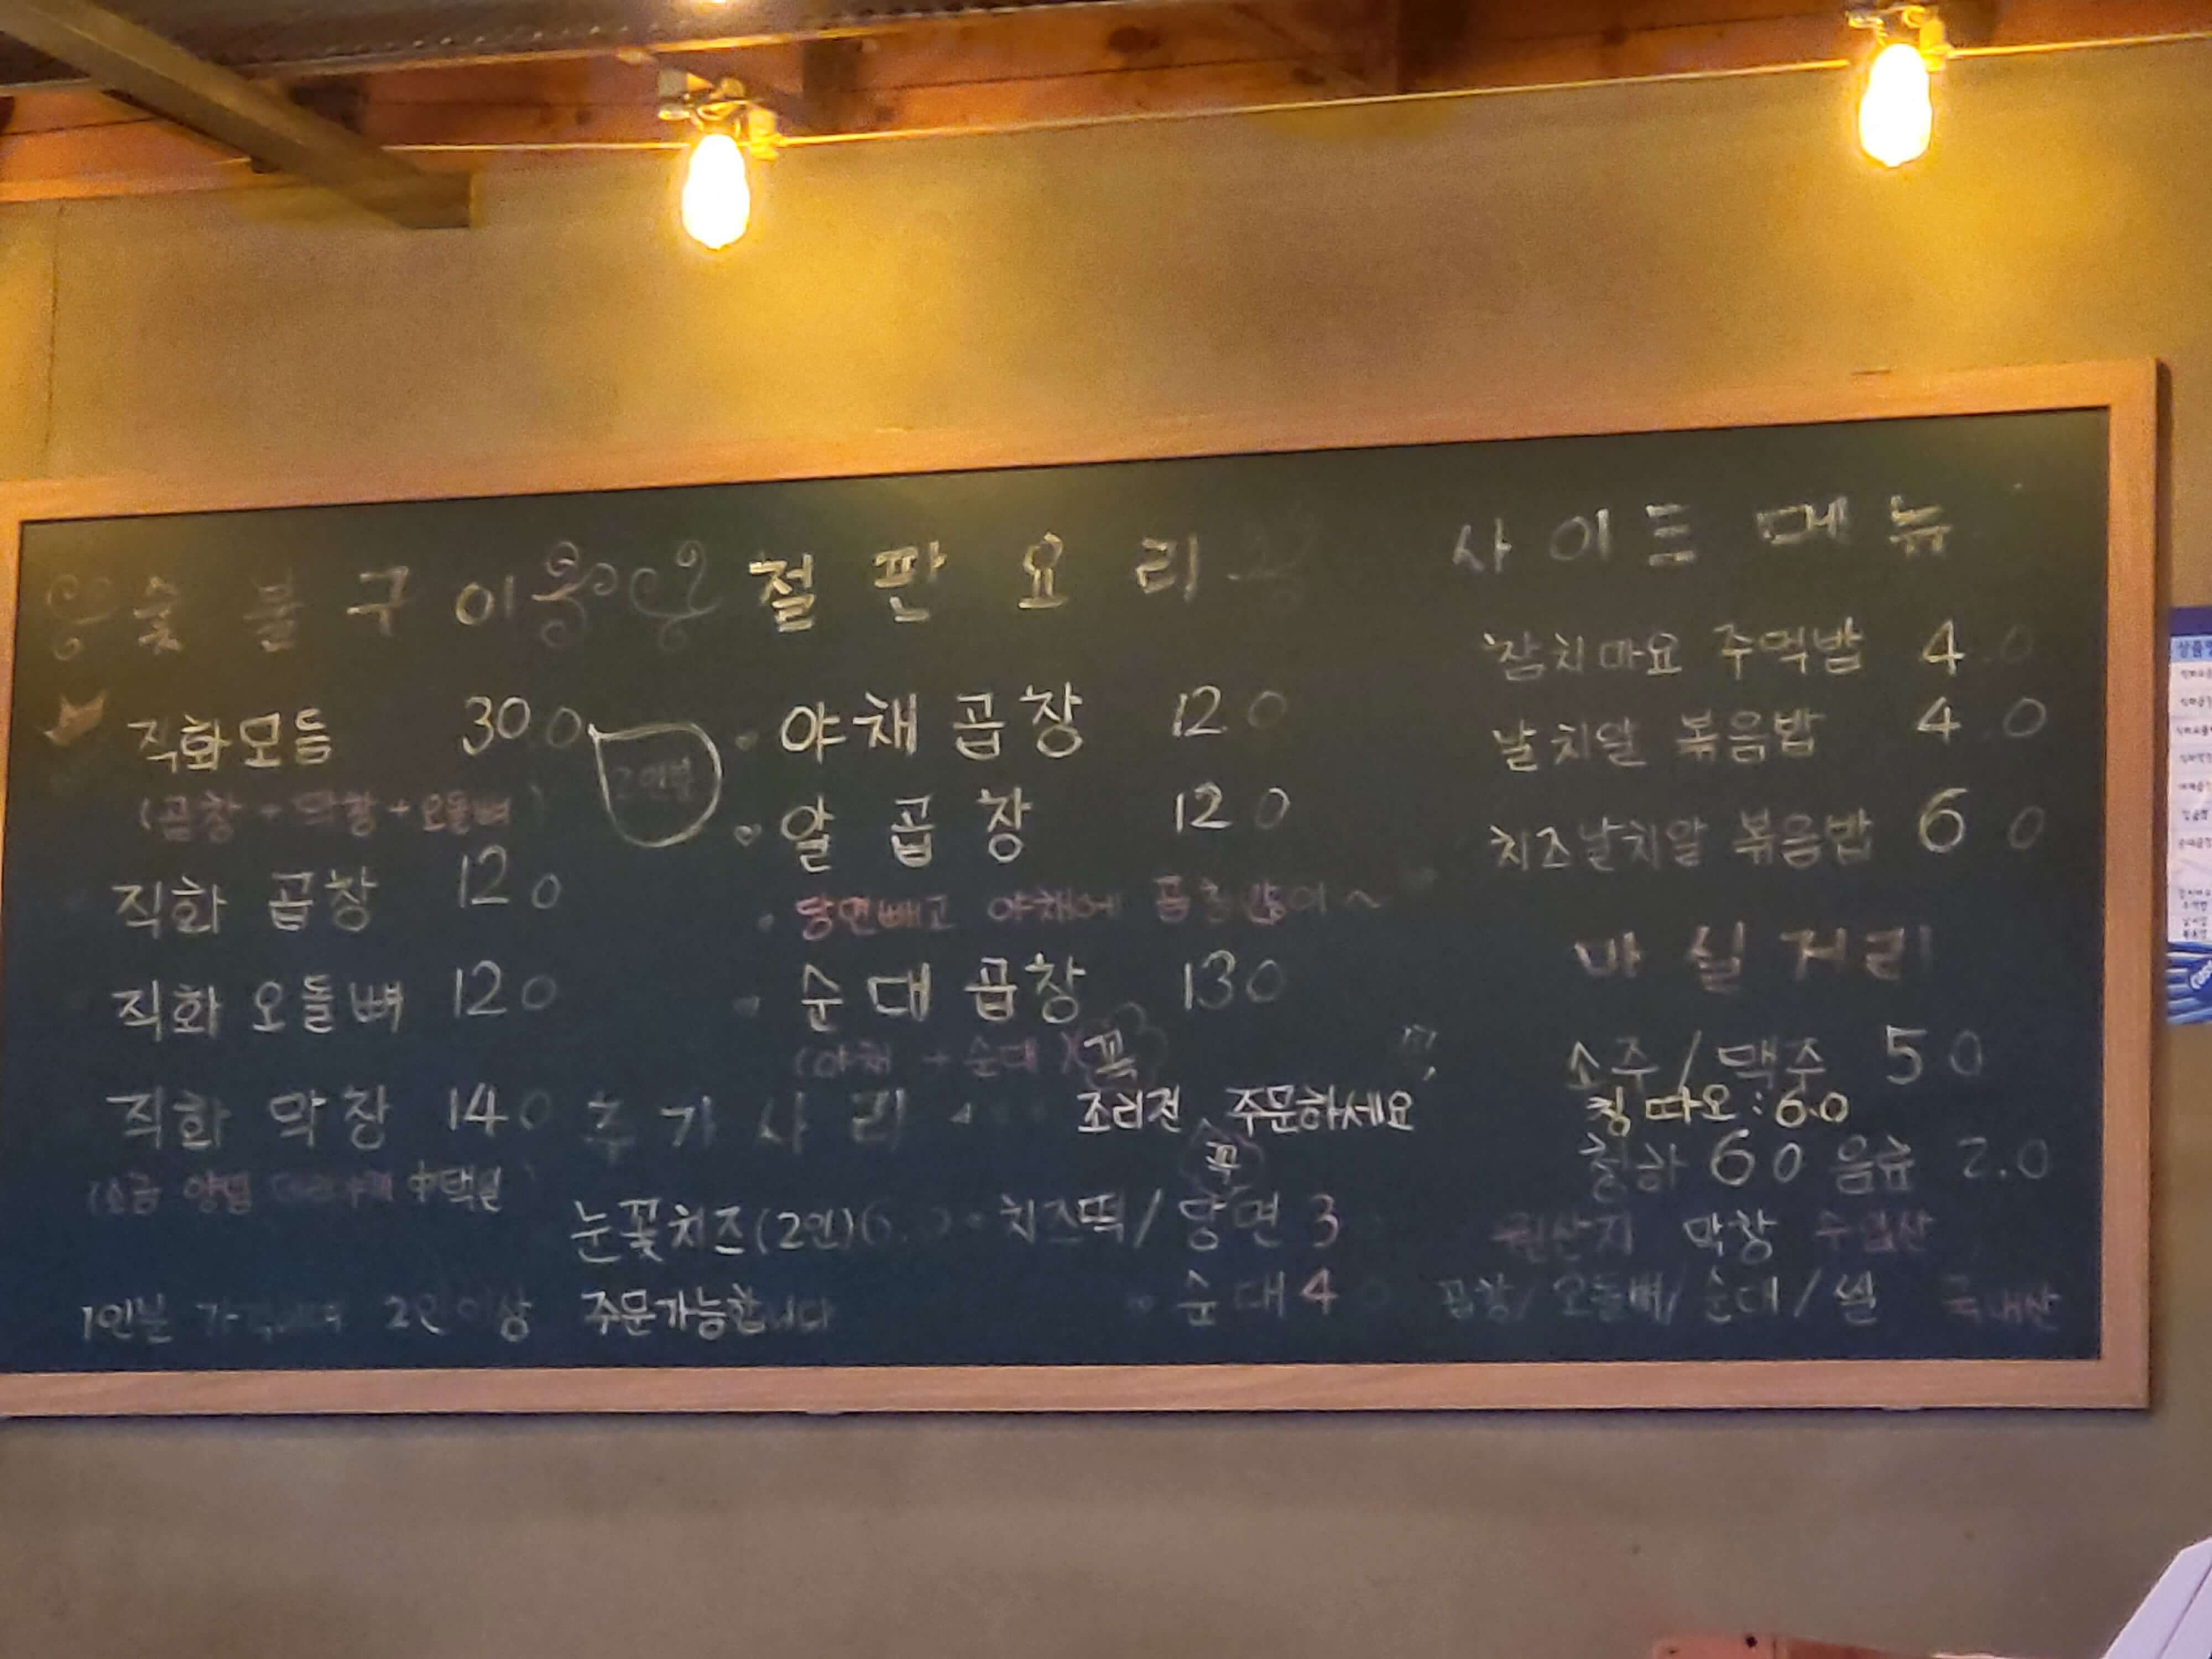 숯 불 구 이
직화모듬 30.0
2인분
(곱창 + 막창 + 오돌뼈)
직화 곱창 12.0
직화 오돌뼈 12.0
직화 막창 14.0
(소금 양념 中택일
철 판 요 리
야채 곱창 12.0
알 곱 창 12.0
당면빼고 야채에 곱창많이~
순대 곱창 13.0
(야채 + 순대)
꼭
추 가 사 리
조리전 주문하세요
꼭
눈꽃치즈(2인) 6.0
치즈떡/당면 3
순대 4
1인분 2인이상 주문가능합니다
사 이 드 메 뉴
참치마요 주먹밥 4.0
날치알 볶음밥 4.0
치즈날치알 볶음밥 6.0
마 실 거 리
소주/맥주 5.0
칭따오:6.0
청하 6.0 음료 2.0
원산지 막창 수입산
곱창/오돌뼈/순대/쌀 국내산